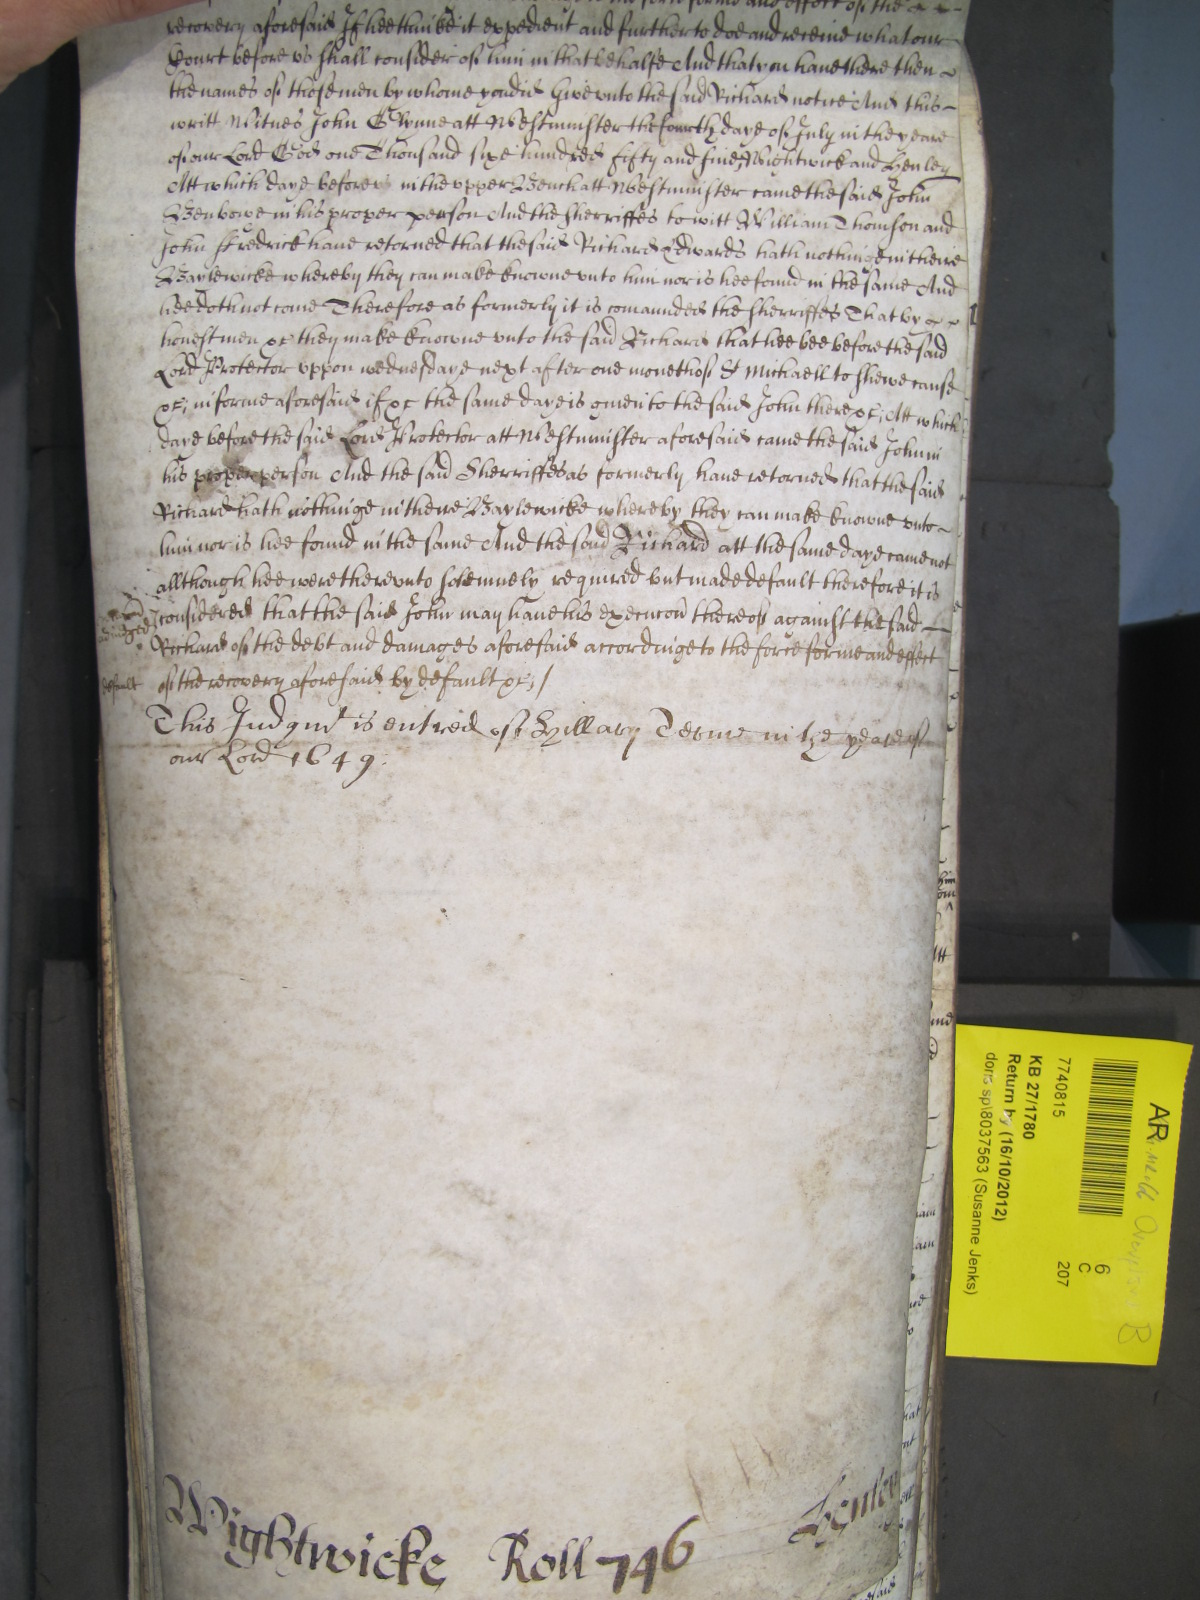 force forme and effect of the
recovery aforesaid If hee thinke it expedient and further to doe and receive what our
Court before vs shall consider of him in that behalfe And that you have there then
the names of those men by whome you did Give vnto the said Richard notice And this
writt Witnes John Glynne att Westminster the fourth daye of July in the yeare
of our Lord God one Thousand sixe hundred fifty and five Wightwick and Henley
Att which daye before vs in the vpper Bench att Westminster came the said John
Benbowe in his proper person And the Sherriffes to witt William Thomson and
John Fredrick have retorned that the said Richard Edwards hath nothinge in theire
Baylewicke whereby they can make knowne vnto him nor is hee found in the same And
hee doth not come Therefore as formerly it is comaunded the sherriffes That by
honest men &c they make knowne vnto the said Richard that hee bee before the said
Lord Protector vppon wednesdaye next after one moneth of St Michaell to shewe cause
&c in forme aforesaid if &c the same daye is given to the said John there &c Att which
daye before the said Lord Protector att Westminster aforesaid came the said John in
his proper person And the said Sherriffes as formerly have retorned that the said
Richard hath nothinge in theire Baylewicke whereby they can make knowne vnto
him nor is hee found in the same And the said Richard att the same daye came not
allthough hee were therevnto solemnely required but made default therefore it is
considered that the said John may have his execucon thereof against the said
Richard of the debt and damages aforesaid accordinge to the force forme and effect
default
of the recovery aforesaid by default &c /
This Judgmt is entred of Hillary Terme in the yeare of
our Lord 1649
Wightwicke Roll 746 Henley
AR
7740815
6
C
207
KB 27/1780
Return by (16/10/2012)
doris sp\8037563 (Susanne Jenks)